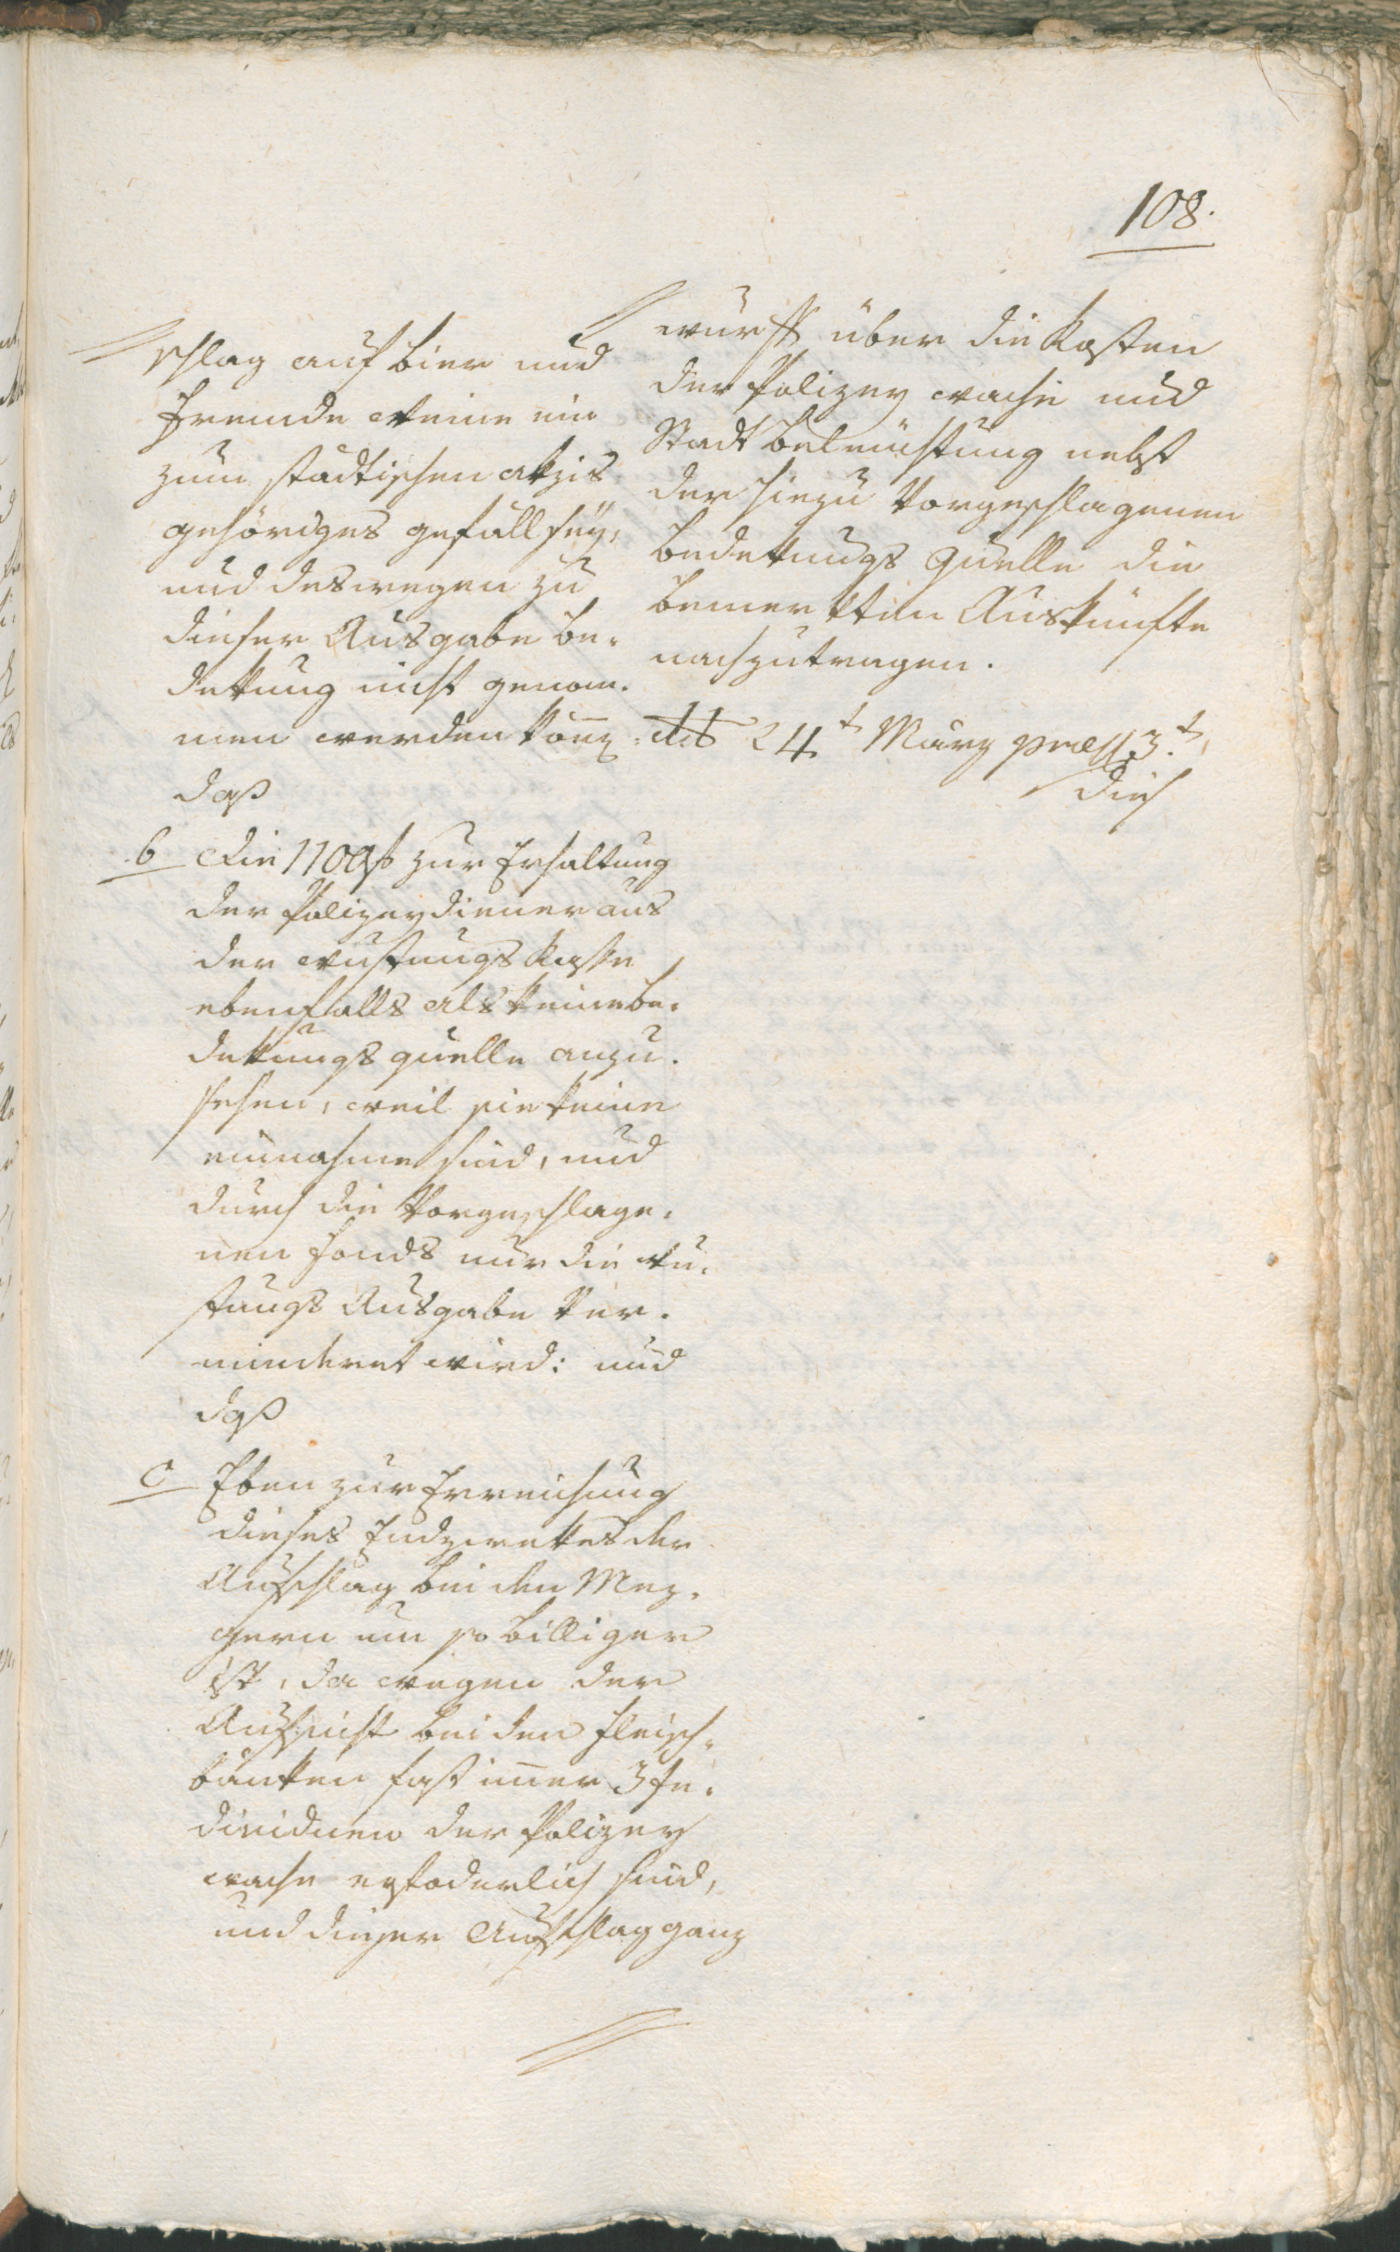 108.
schlag auf Bier und
fremde Weine ein
zum städtischen Akzis
gehöriges gefäll sey,
und deswegen zu
dieser Ausgabe be-
dekung nicht genom-
men werden könne
daß
b die 1100 f zur Erhaltung
der Polizeydiener aus
der Kasse
ebenfalls als keine be-
dekungs quelle anzu-
sehen, weil sie keine
einnahme sind, und
durch die Vorgeschlage-
nen Fonds nur die
Ausgabe Ver-
mindert wird: und
daß
c Eben zur Erreichung
dieses Endzwekes der
Aufschlag bei den Mez-
gern um so billiger
ist, da wegen der
Aufsicht bei den Fleisch-
bänken fast immer 3 In-
dividuen der Polizey
wache erfoderlich sind,
und dieser Aufschlag ganz
wurff über die Kosten
der Polizey wache und
Stadt beleuchtung nebst
der hiezu Vorgeschlagenen
bedekungs Quelle die
bemerkten Auskünfte
nachzutragen.
24t März 3t
dieß